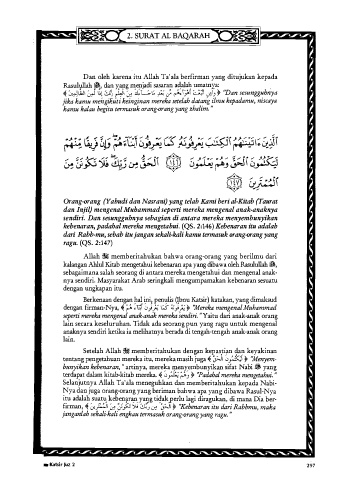 2. SURAT AL BAQARAH
Dan oleh karena itu Allah Ta'ala berfirman yang ditujukan kepada
Rasulullah ﷺ, dan yang menjadi sasaran adalah umatnya:
﴿ وَلَئِنِ اتَّبَعْتَ أَهْوَاءَهُم مِّن بَعْدِ مَا جَاءَكَ مِنَ الْعِلْمِ إِنَّكَ إِذًا لَّمِنَ الظَّالِمِينَ ﴾ "Dan sesungguhnya
jika kamu mengikuti keinginan mereka setelah datang ilmu kepadamu, niscaya
kamu kalau begitu termasuk orang-orang yang zhalim."
الَّذِينَ ءَاتَيْنَاهُمُ الْكِتَابَ يَعْرِفُونَهُ كَمَا يَعْرِفُونَ أَبْنَاءَهُمْ وَإِنَّ فَرِيقًا مِّنْهُمْ
لَيَكْتُمُونَ الْحَقَّ وَهُمْ يَعْلَمُونَ ﴿١٤٦﴾ الْحَقُّ مِن رَّبِّكَ فَلَا تَكُونَنَّ مِنَ
الْمُمْتَرِينَ ﴿١٤٧﴾
Orang-orang (Yahudi dan Nasrani) yang telah Kami beri al-Kitab (Taurat
dan Injil) mengenal Muhammad seperti mereka mengenal anak-anaknya
sendiri. Dan sesungguhnya sebagian di antara mereka menyembunyikan
kebenaran, padahal mereka mengetahui. (QS. 2:146) Kebenaran itu adalah
dari Rabb-mu, sebab itu jangan sekali-kali kamu termasuk orang-orang yang
ragu. (QS. 2:147)
Allah ﷻ memberitahukan bahwa orang-orang yang berilmu dari
kalangan Ahlul Kitab mengetahui kebenaran apa yang dibawa oleh Rasulullah ﷺ,
sebagaimana salah seorang di antara mereka mengetahui dan mengenal anak-
nya sendiri. Masyarakat Arab seringkali mengumpamakan kebenaran sesuatu
dengan ungkapan itu.
Berkenaan dengan hal ini, penulis (Ibnu Katsir) katakan, yang dimaksud
dengan firman-Nya, ﴿ يَعْرِفُونَهُ كَمَا يَعْرِفُونَ أَبْنَاءَهُمْ ﴾ "Mereka mengenal Muhammad
seperti mereka mengenal anak-anak mereka sendiri." Yaitu dari anak-anak orang
lain secara keseluruhan. Tidak ada seorang pun yang ragu untuk mengenal
anaknya sendiri ketika ia melihatnya berada di tengah-tengah anak-anak orang
lain.
Setelah Allah ﷻ memberitahukan dengan kepastian dan keyakinan
tentang pengetahuan mereka itu, mereka masih juga ﴿ لَيَكْتُمُونَ الْحَقَّ ﴾ "Menyem-
bunyikan kebenaran," artinya, mereka menyembunyikan sifat Nabi ﷺ yang
terdapat dalam kitab-kitab mereka. ﴿ وَهُمْ يَعْلَمُونَ ﴾ "Padahal mereka mengetahui."
Selanjutnya Allah Ta'ala meneguhkan dan memberitahukan kepada Nabi-
Nya dan juga orang-orang yang beriman bahwa apa yang dibawa Rasul-Nya
itu adalah suatu kebenaran yang tidak perlu lagi diragukan, di mana Dia ber-
firman, ﴿ الْحَقُّ مِن رَّبِّكَ فَلَا تَكُونَنَّ مِنَ الْمُمْتَرِينَ ﴾ "Kebenaran itu dari Rabbmu, maka
janganlah sekali-kali engkau termasuk orang-orang yang ragu."
Katsir Juz 2
297